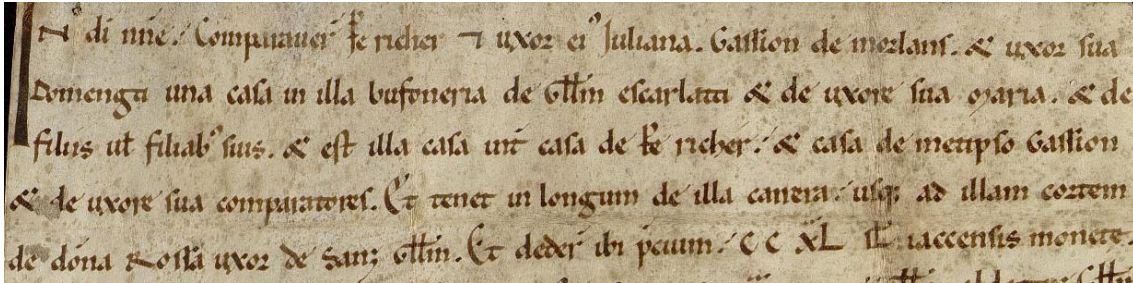 IN di nīe. Comparaver Pe richer ⁊ uxor ei⁹ Juliana. Gassion de morlans. & uxor sua
Domenga una casa in illa bufoneria de Gƚƚm escarlatti & de uxore sua Maria. & de
filiis uƚ filiab⁹ suis. & est illa casa int̄ casa de Pe richer. & casa de metipso Gassion
& de uxore sua comparatores. Et tenet in longum de illa carrera usq; ad illam cortem
de dōna Rossa uxor de Sanz Gƚƚm. Et deder ibi p̄cium. CC XL sƚ iaccensis monete.